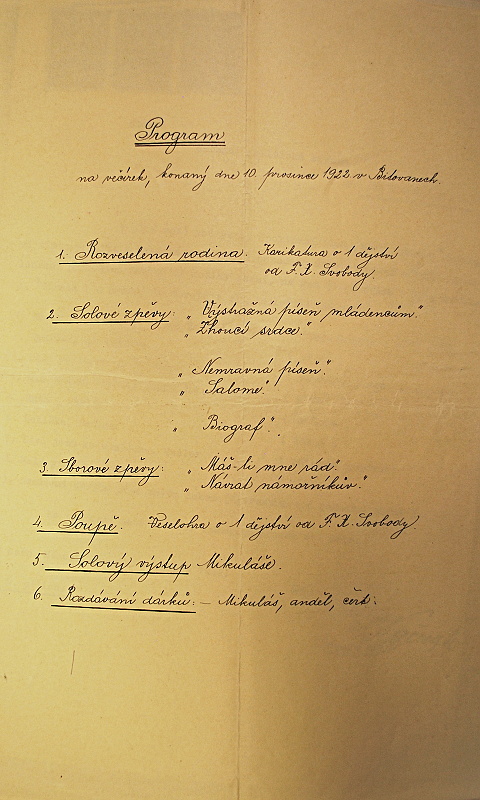 Program
na večírek, konaný dne 10. prosince 1922 v Bítovanech.
1. Rozveselená rodina. Karikatura o 1 dějství
od F. X. Svobody.
2. Solové zpěvy: „Výstražná píseň mládencům."
„Žhoucí srdce."
„Nemravná píseň".
„Salome".
„Biograf".
3. Sborové zpěvy: „Máš-li mne rád".
„Návrat námořníkův."
4. Poupě. Veselohra o 1 dějství od F. X. Svobody
5. Solový výstup Mikuláše.
6. Rozdávání dárků: – Mikuláš, anděl, čert.